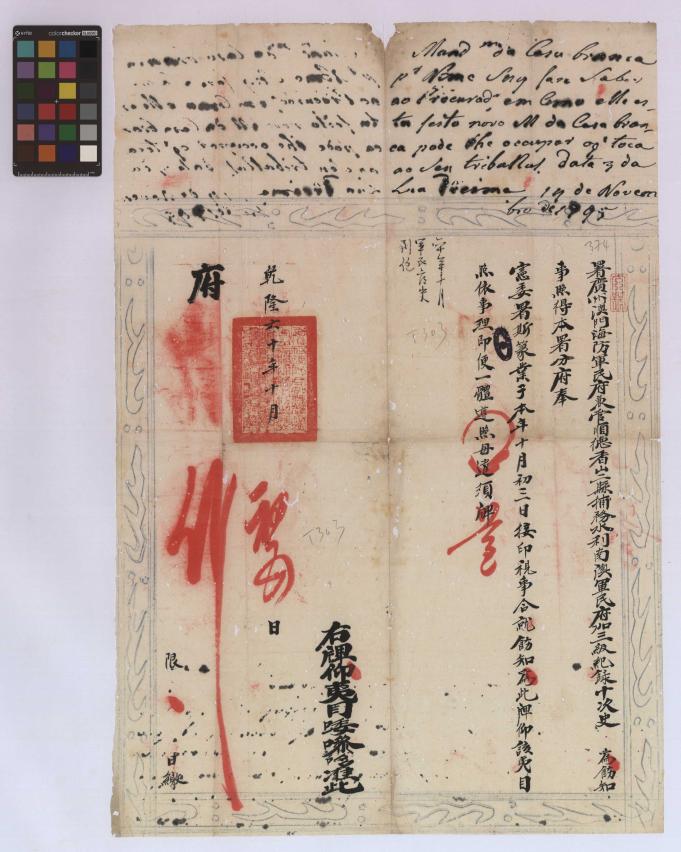 colorchecker
Mand.^m da Casa branca
p.^r Nome Sny faz Saber
ao Procurad.^r em Como elle es
ta feito novo M da Casa bran-
ca pode lhe occupar o q' toca
ao Seu tribal Data 3 da
Lua Decima 17 de Novem
bro de 1795
374
署廣州澳門海防軍民府兼管順德香山二縣捕務水利南澳軍民府加三級紀錄十次史 為飭知
事照得本署分府奉
憲委署斯篆業于本年十月初三日接印視事合就飭知為此牌仰該夷目
照依事理即便一體遵照毋違須牌
六十年十月
T303
右牌仰夷目嚟哆准此
乾隆六十年十月 初四 日
T303
府
限 日繳